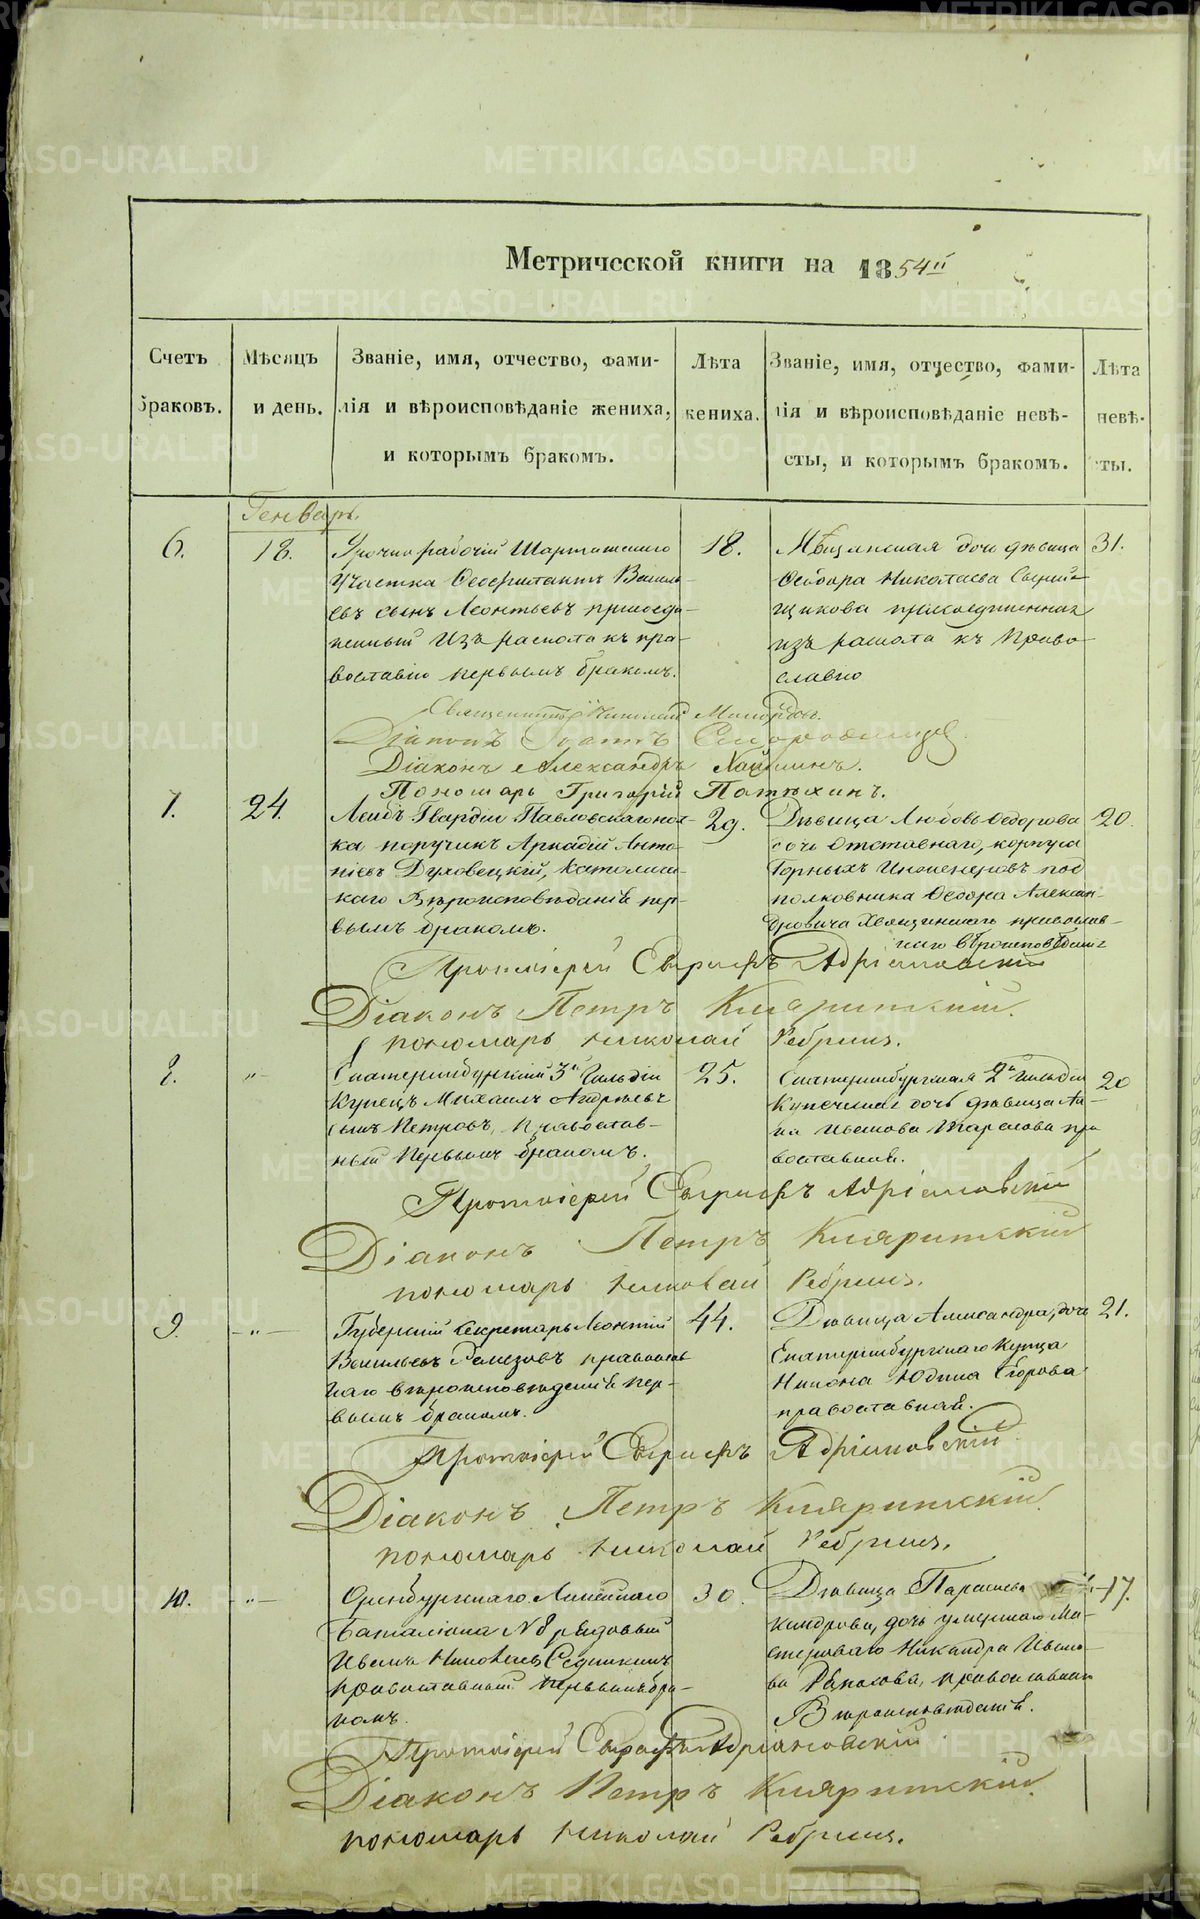 METRIKI.GASO-URAL.RU
Метрической книги на 1854й
Счетъ браковъ.
Мѣсяцъ и день.
Званіе, имя, отчество, фами-
лія и вѣроисповѣданіе жениха,
и которымъ бракомъ.
Лѣта
жениха.
Званіе, имя, отчество, фами-
лія и вѣроисповѣданіе невѣ-
сты, и которымъ бракомъ.
Лѣта
невѣ-
сты.
Генварь.
6.
18.
Урочно рабочій Шарташскаго
участка Василь-
евъ сынъ Леонтьевъ присоеди-
ненный изъ раскола къ пра-
вославію первымъ бракомъ.
18.
Мѣщанская дочь дѣвица
Ѳеодора Николаева
щикова присоединенная
изъ раскола къ Право-
славію
31.
Священникъ Николай
Діаконъ Іоаннъ
Діаконъ Александръ
Пономарь Григорій
7.
24.
Лейбъ Гвардіи Павловскаго пол-
ка поручикъ Аркадій Анто-
ніевъ Духовецкій, католичес-
каго Вѣроисповѣданія пер-
вымъ бракомъ.
29.
Дѣвица Любовь Ѳедорова
дочь Отставнаго, корпуса
Горныхъ Инженеровъ под
полковника Ѳедора Алексан-
дровича православ-
наго вѣроисповѣданія
20.
Протоіерей Адріановскій
Діаконъ Петръ
пономарь Николай Ребринъ.
8.
-"-
Екатеринбургскій 3й Гильдіи
Купецъ Михаилъ Андреевъ
сынъ Петровъ, Православ-
ный Первымъ бракомъ.
25.
Екатеринбургская 2й гильдіи
Купеческая дочь дѣвица Ан-
на Иванова Тарасова пра
вославная.
20
Протоіерей Адріановскій
Діаконъ Петръ
пономарь Николай Ребринъ.
9.
-"-
Губернскій Секретарь Леонтій
Васильевъ Ремезовъ православ
наго вѣроисповѣданія пер-
вымъ бракомъ.
44.
Дѣвица Александра, дочь
Екатеринбургскаго Купца
Юдина Егорова
православная.
21.
Протоіерей Адріановскій
Діаконъ Петръ
пономарь Николай Ребринъ.
10.
-"-
Оренбургскаго Линейнаго
Баталіона №8 рядовый
Иванъ
православный первымъ бра-
комъ.
30.
Дѣвица Параскева
кандрова, дочь умершаго Ма-
стероваго Никандра Ивано-
ва православнаго
Вѣроисповѣданія.
17.
Протоіерей Адріановскій
Діаконъ Петръ
пономарь Николай Ребринъ.